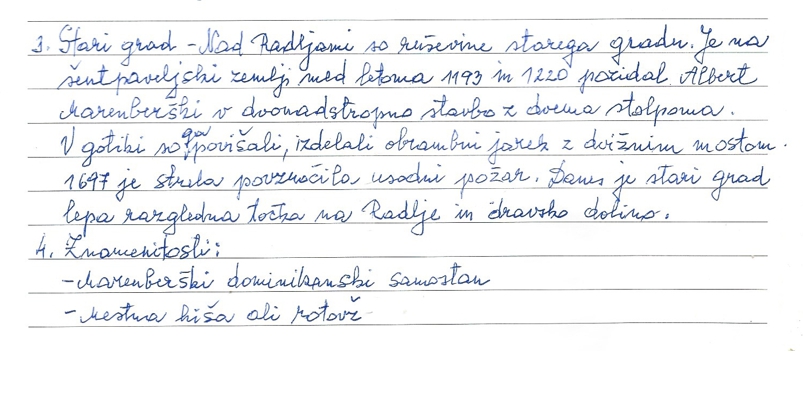 3. Stari grad - Nad Radljami so ruševine starega gradu. Je na
šentpaveljski zemlji med letoma 1193 in 1220 pozidal Albert
Marenberški v dvonadstropno stavbo z dvema stolpoma.
V gotiki so ga povišali, izdelali obrambni jarek z dvižnim mostom.
1697 je strela povzročila usodni požar. Danes je stari grad
lepa razgledna točka na Radlje in dravsko dolino.
4. Znamenitosti:
- Marenberški dominikanski samostan
- Mestna hiša ali rotovž